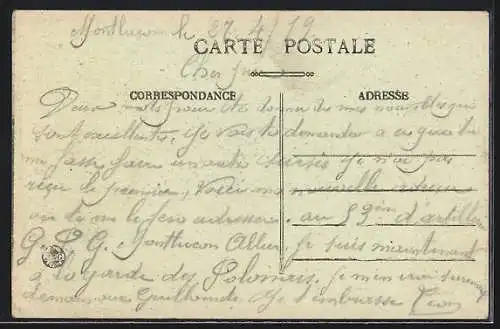 Montluçon le 27/4/19
CARTE POSTALE
Cher
CORRESPONDANCE ADRESSE
Deux mots pour te donner de mes nouvelles qui
sont excellentes. Je vais te demander
me faire faire un autre sursis je n'ai pas
reçu le premier, Voici ma nouvelle adresse
ou tu me le fera adresser. au 59em d'artillerie
G. P. G. Montlucon Allier, je suis maintenant
à la garde des Polonais. je m'en irai
demain aux Je t'embrasse Léon